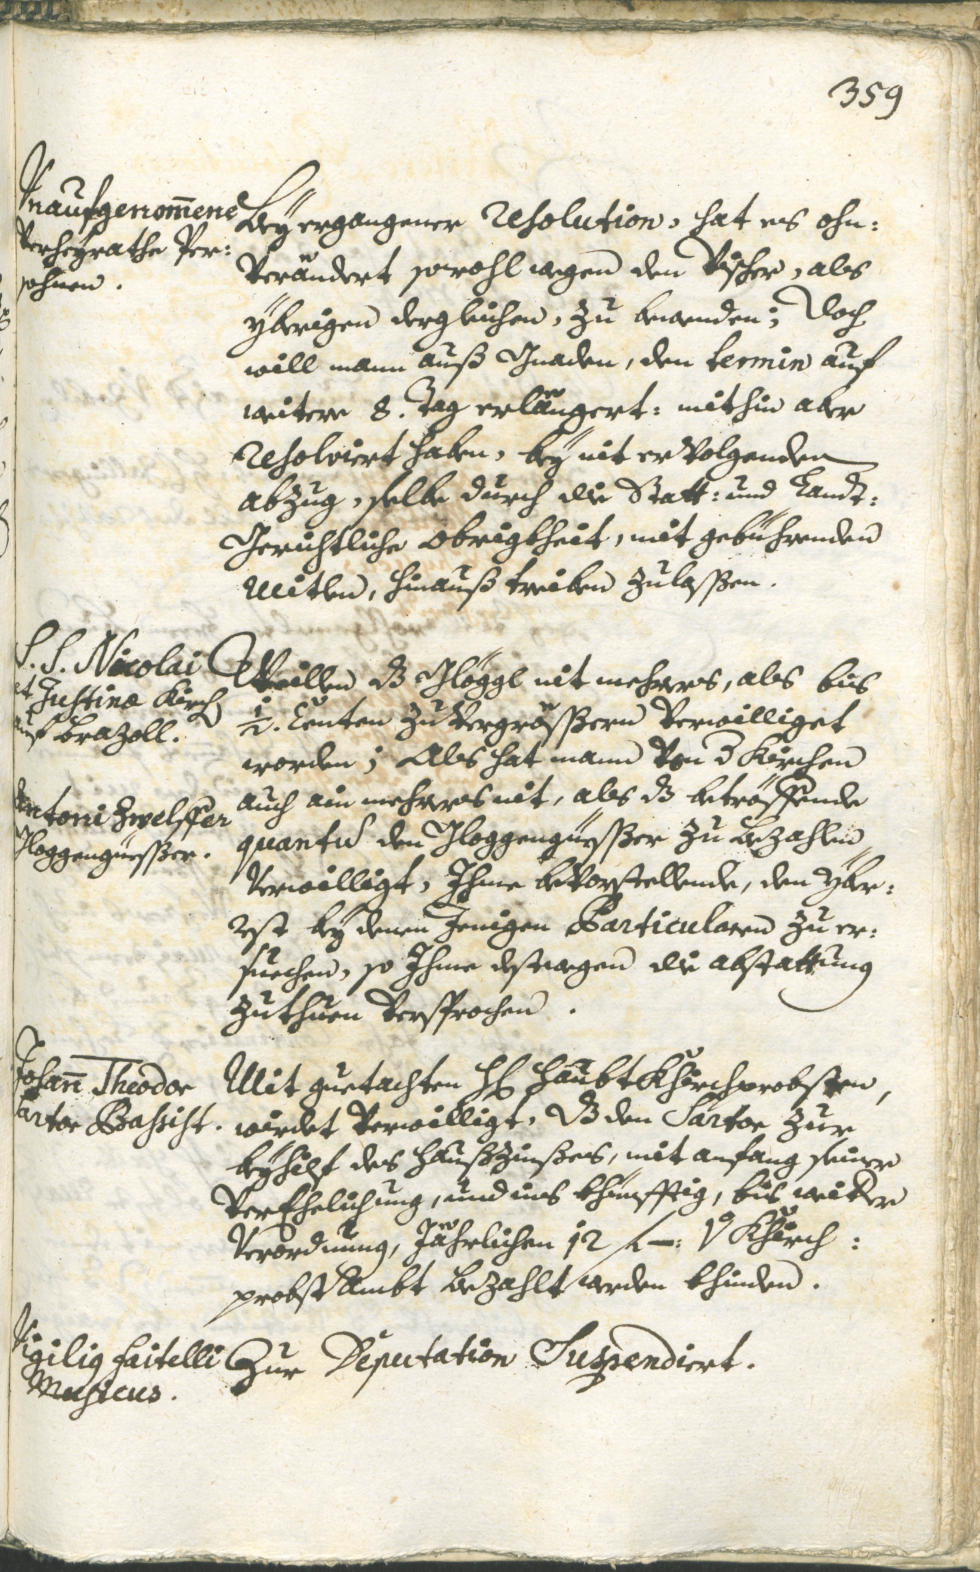 359
Unaufgenom̄ene
Verheyrathe Per:
sohnen.
Bey ergangener Resolution, hat es ohn:
verändert sowohl wegen den Vischer, als
yberigen dergleichen, zu bewenden; Doch
will mann auß Gnaden, den termin auf
weitere 8. Tag erlängert: mithin aber
resolviert haben, bey nit ervolgenden
abzug, selbe durch die Statt: und Landt:
Gerichtliche Obrigkheit, mit gebührenden
Mitlen, hinauß treiben zulassen.
S. S. Nicolai
et Justinæ Kirch
auf Prazoll.
Antoni Zwelffer
Gloggengüesser.
Weillen dz Glöggl nit mehrers, als bis
½. Centen zu vergrössern verwilliget
worden; Als hat mann von d Kirchen
auch ain mehrers nit, als dz betröffende
quantū den Gloggengüesser zu bezahlen
verwilligt, Ihme bevorstellende, den yber:
rest bey denen Jenigen Particularen zu er:
suechen, so Ihme destwegen die abstattung
zuthuen versprochen.
Johan̄ Theodor
Sartor Bassist.
Mit guetachten H Haubt Khirchprobsten,
würdet verwilligt, dz den Sartor zur
beyhilf des Haußzinßes, mit anfang seiner
VerEhelichung, und ins khünfftig, bis weitere
Verordnung, Jährlichen 12 f —: Khirch:
probst Ambt bezahlt werden khinden.
Vigilig Faitelli
Musicus.
Zur Deputation Suspendiert.